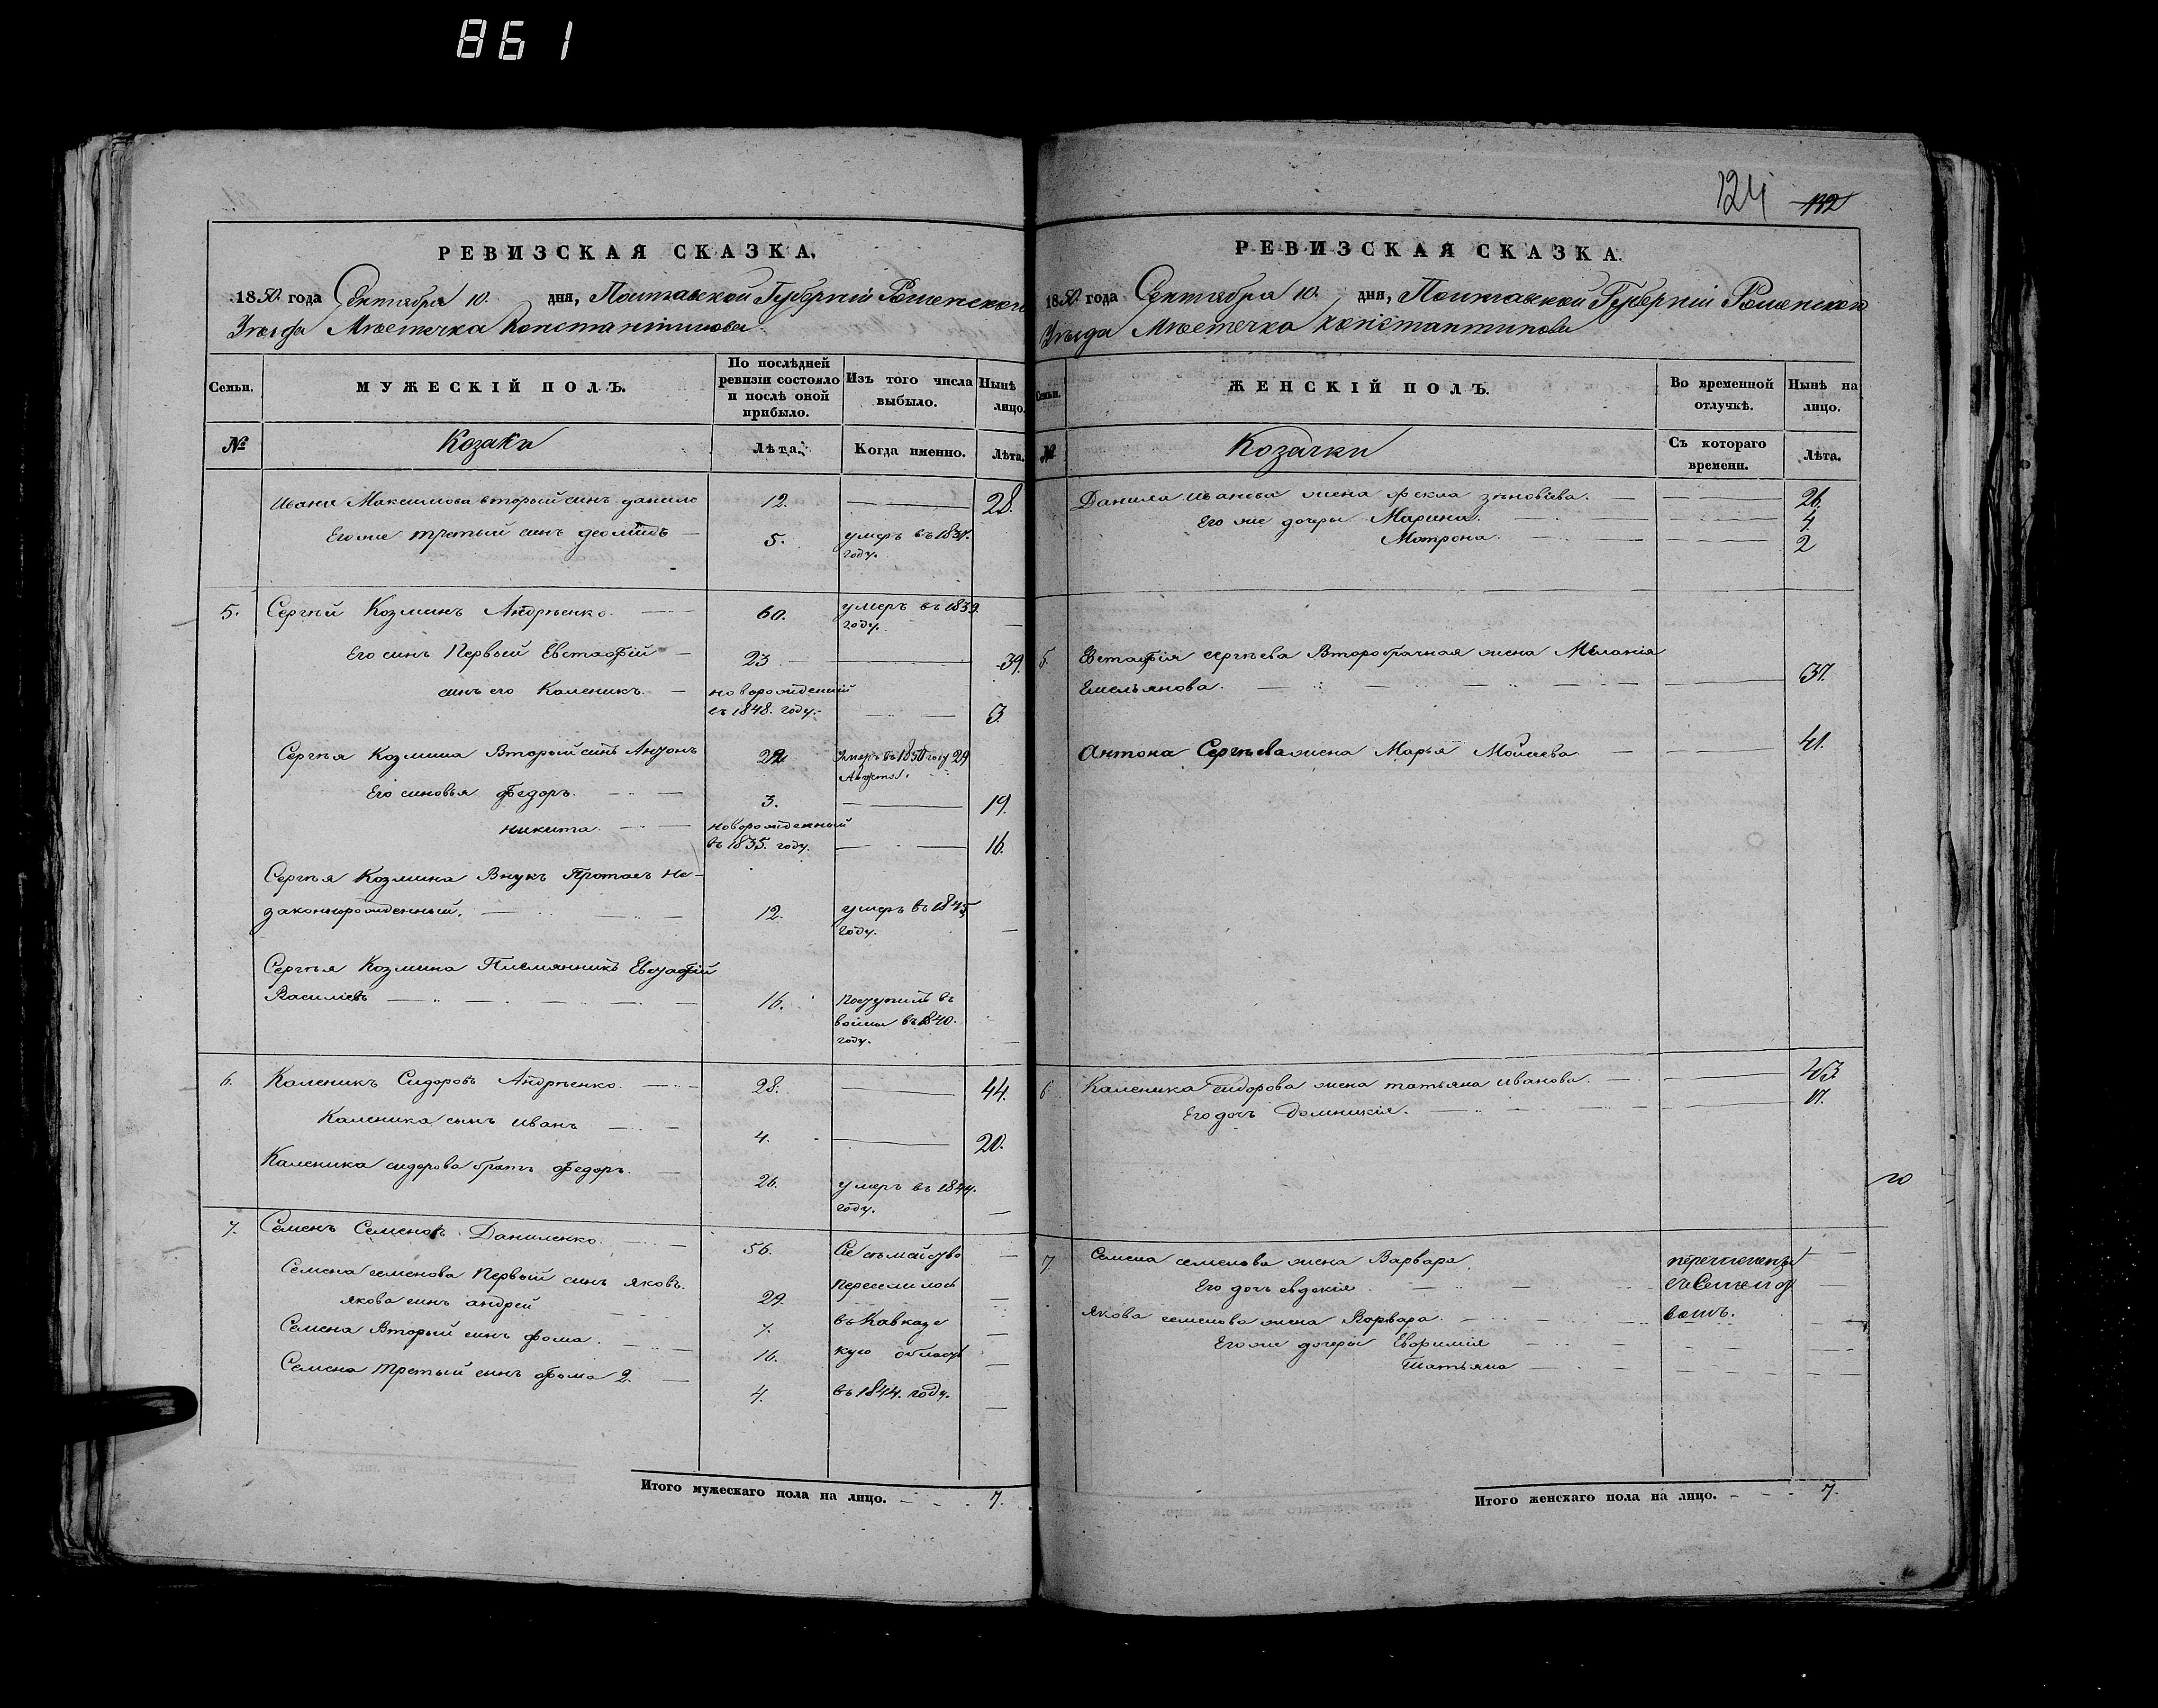 861
РЕВИЗСКАЯ СКАЗКА.
1850. года Сентября 10. дня, Полтавской Губерніи Роменского
Уѣзда Мѣстечка Константинова
Семьи. МУЖЕСКІЙ ПОЛЪ. По послѣдней ревизіи состояло и послѣ оной прибыло. Изъ того числа выбыло. Нынѣ лицо.
№ Козаки Лѣта. Когда именно. Лѣта.
Ивана Максимова вторый синъ данило 12. 28.
Его же третый синъ деомидъ 5. умеръ въ 1837.
году.
5. Сергѣй Козминъ Андрѣенко 60. умеръ въ 1839.
году.
Его синъ Первый Евстафій 23 39.
синъ его Каленикъ новорожденній
въ 1848. году. 3.
Сергѣя Козмина Вторый синъ Антонъ 22 умеръ въ 1850 году 29
Августа.
Его синовья Федоръ 3. 19.
никита новорожденный
въ 1835. году. 16.
Сергѣя Козмина Внукъ Протасъ не-
законнорожденный. 12. умеръ въ 1845
году.
Сергѣя Козмина Племянникъ Евстафій
Василіевъ 16. Поступилъ въ
воины въ 1840.
году.
6. Каленикъ Сидоровъ Андрѣенко 28. 44.
Каленика сынъ иванъ 4. 20.
Каленика сидорова братъ Федоръ 26. умеръ въ 1844.
году.
7. Семенъ Семеновъ Даниленко 56. Сіе съмейство
Семена семенова Первый синъ яковъ 29. переселилось
якова синъ андрей 7. въ Кавказс
Семена Вторый синъ фома 16. кую область
Семена третый синъ фома 2. 4. въ 1844. году.
Итого мужескаго пола на лицо. 7.
124 132
РЕВИЗСКАЯ СКАЗКА.
1850. года Сентября 10. дня, Полтавской Губерніи Роменского
Уѣзда Мѣстечка константинова
Семьи. ЖЕНСКІЙ ПОЛЪ. Во временной отлучкѣ. Нынѣ на лицо.
№ Козачки Съ котораго времени. Лѣта.
Данила иванова жена фекла зѣновіева. 26.
Его же дочеры Марина. 4.
Мотрона 2
5. Евстафія сергѣева Второбрачная жена Меланія
Емельянова. 37.
Антона Сергѣева жена Марья Моисеева 41.
6 Каленика сидорова жена татьяна иванова. 43.
Его дочъ Домникія. 17.
7 Семена семенова жена Варвара перечислены
Его дочъ евдокія съ Семей
якова семенова жена Варвара
Его же дочери Ефимія
Татьяна
Итого женскаго пола на лицо. 7.